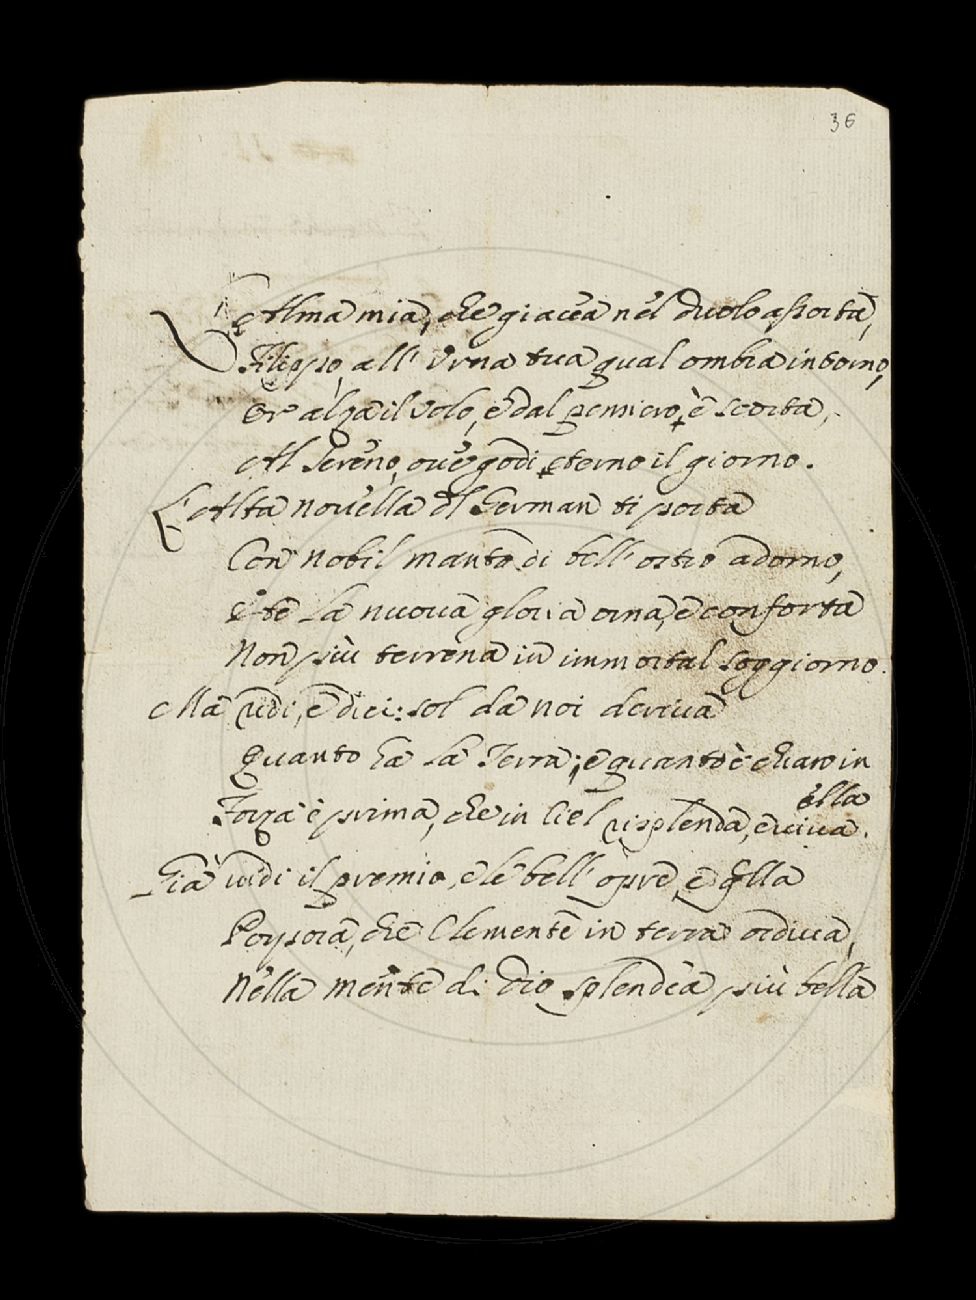 36
L'Alma mia, che giacea nel duolo assorta,
Filippo, all' Urna tua qual ombra intorno,
Or' alza il Volo, e dal pensiero, è scorta,
Al Sereno, ove godi eterno il giorno.
L'Alta novella il German ti porta
Con nobil manto di bell' ostro adorno,
E te la nuova gloria orna, e conforta
Non più terrena in immortal soggiorno.
Ma vedi, e dici: sol da noi deriva
Quanto ha la Terra; e quanto è chiaro in ella
Forza è prima, che in Ciel risplenda, e viva.
Già vidi il premio, e le bell' opre, e q'lla
Porpora, che Clemente in terra ordiva,
Nella mente di Dio splendea più bella